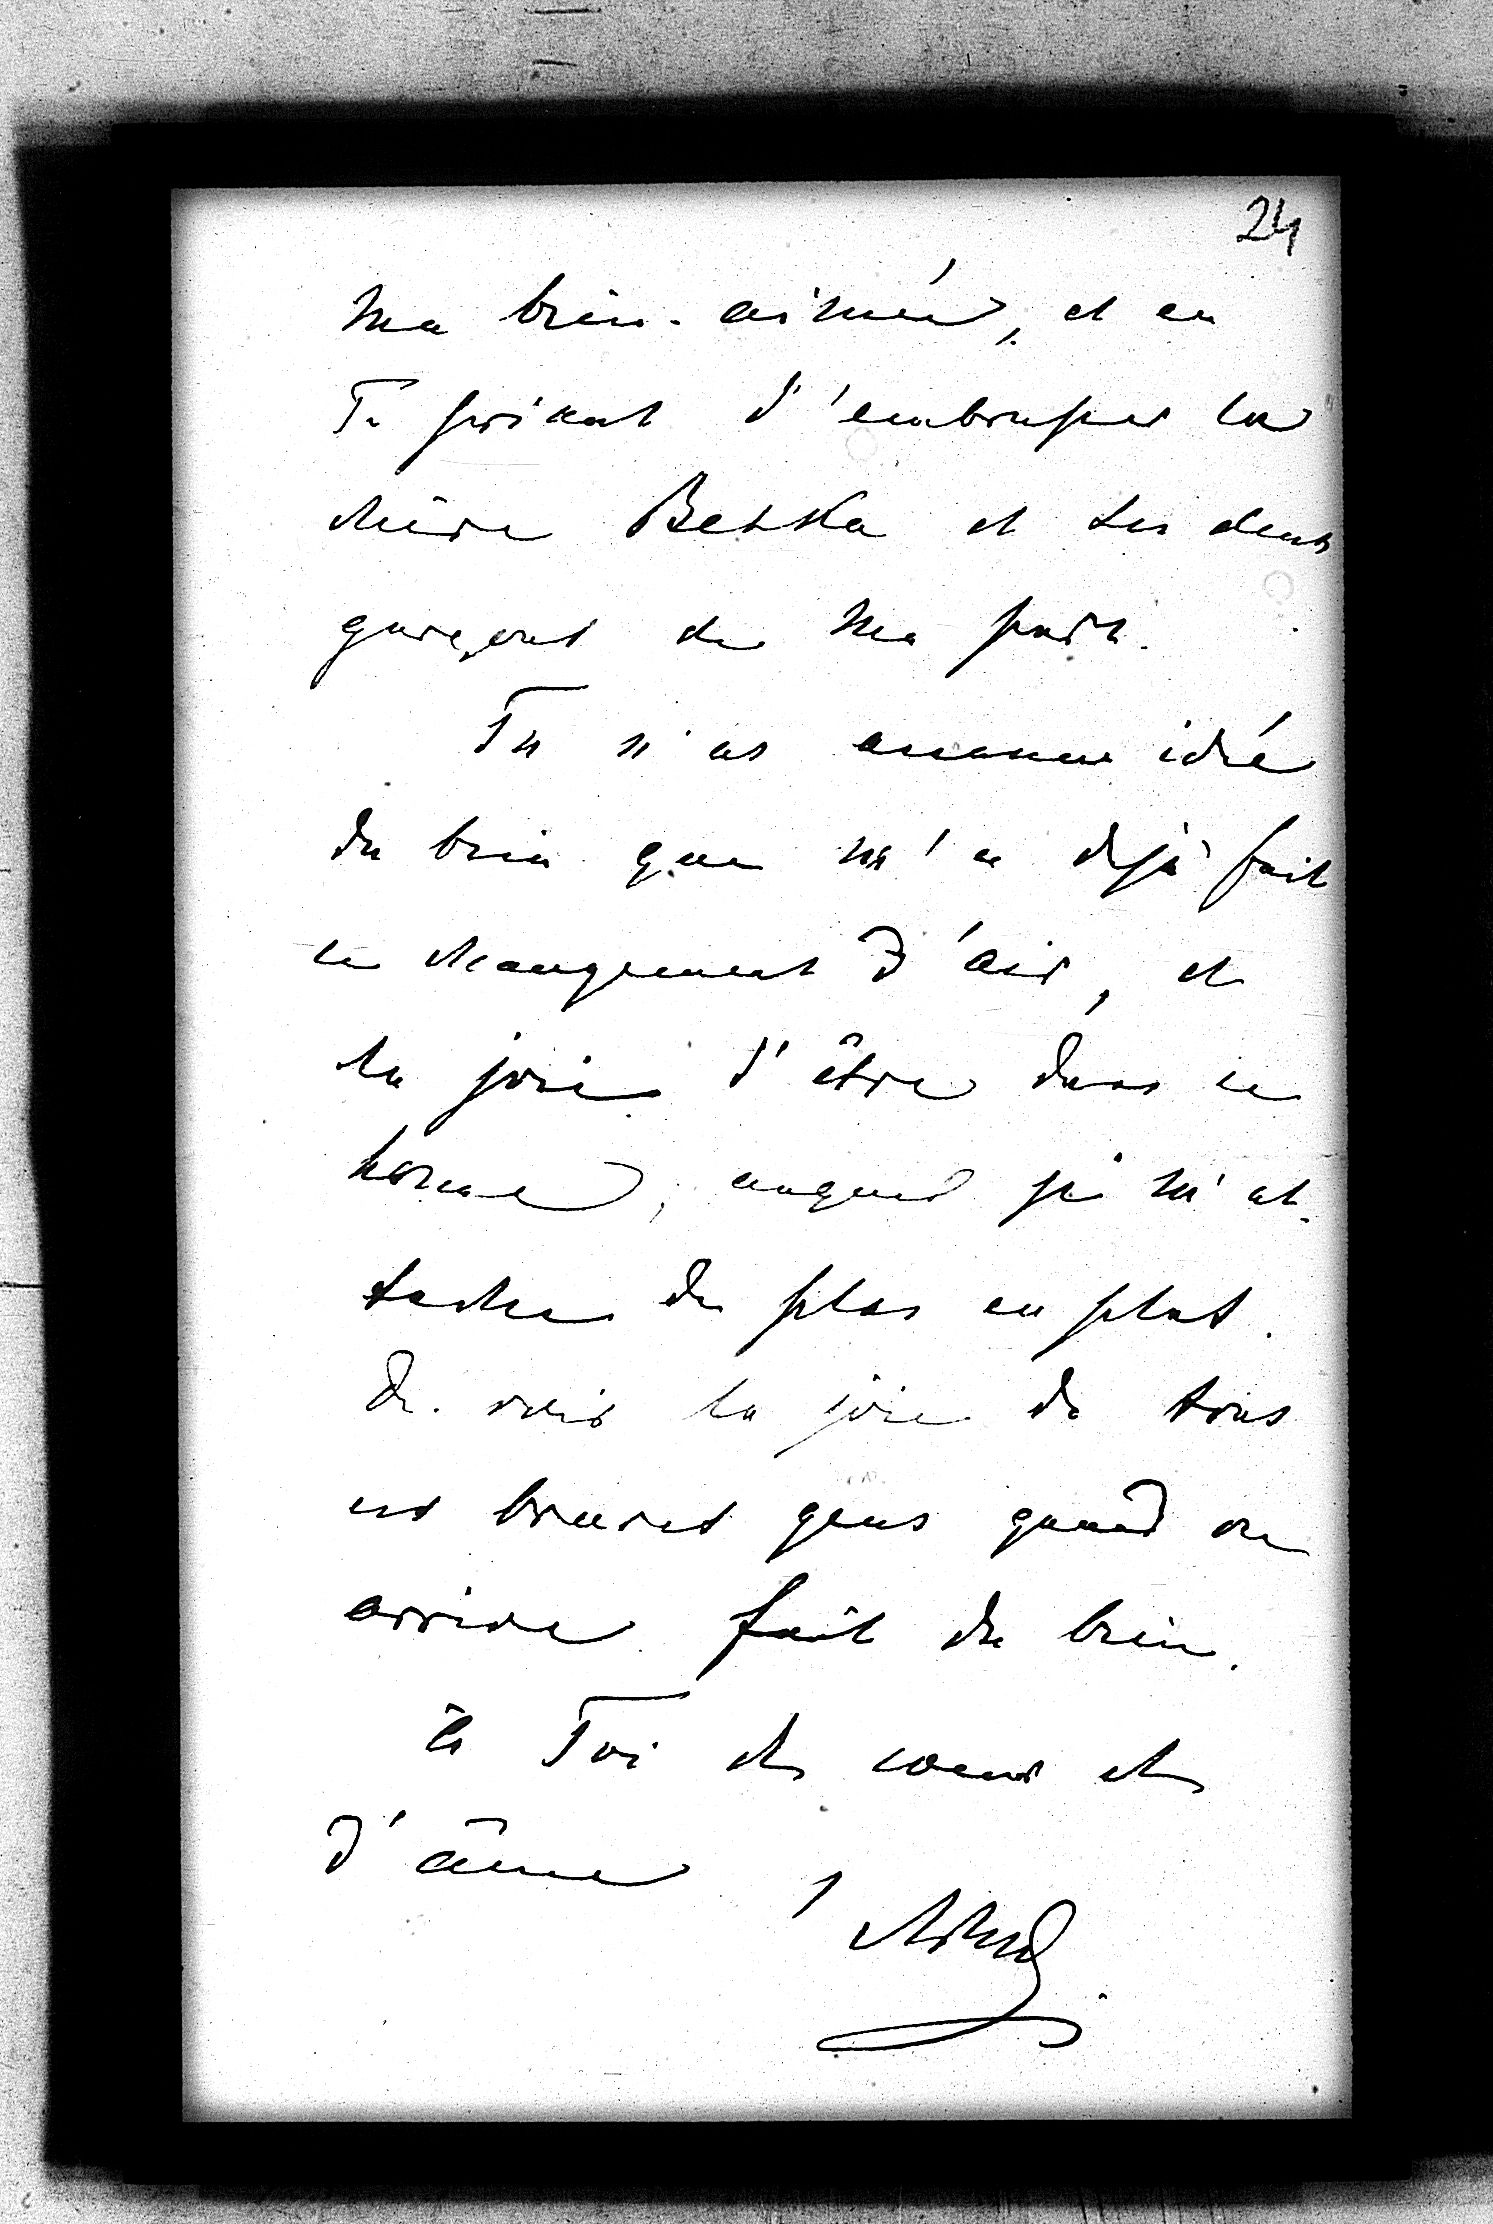 24
ma bien-aimée, et en
Te priant d'embrasser la
chère Betska et tes deux
garçons de ma part.
Tu n'as aucune idée
du bien que m'a déjà fait
ce changement d'air, et
la joie d'être dans ce
home, auquel je m'at-
tache de plus en plus.
De voir la joie de tous
ces braves gens quand on
arrive fait du bien.
à Toi de cœur et
d'âme